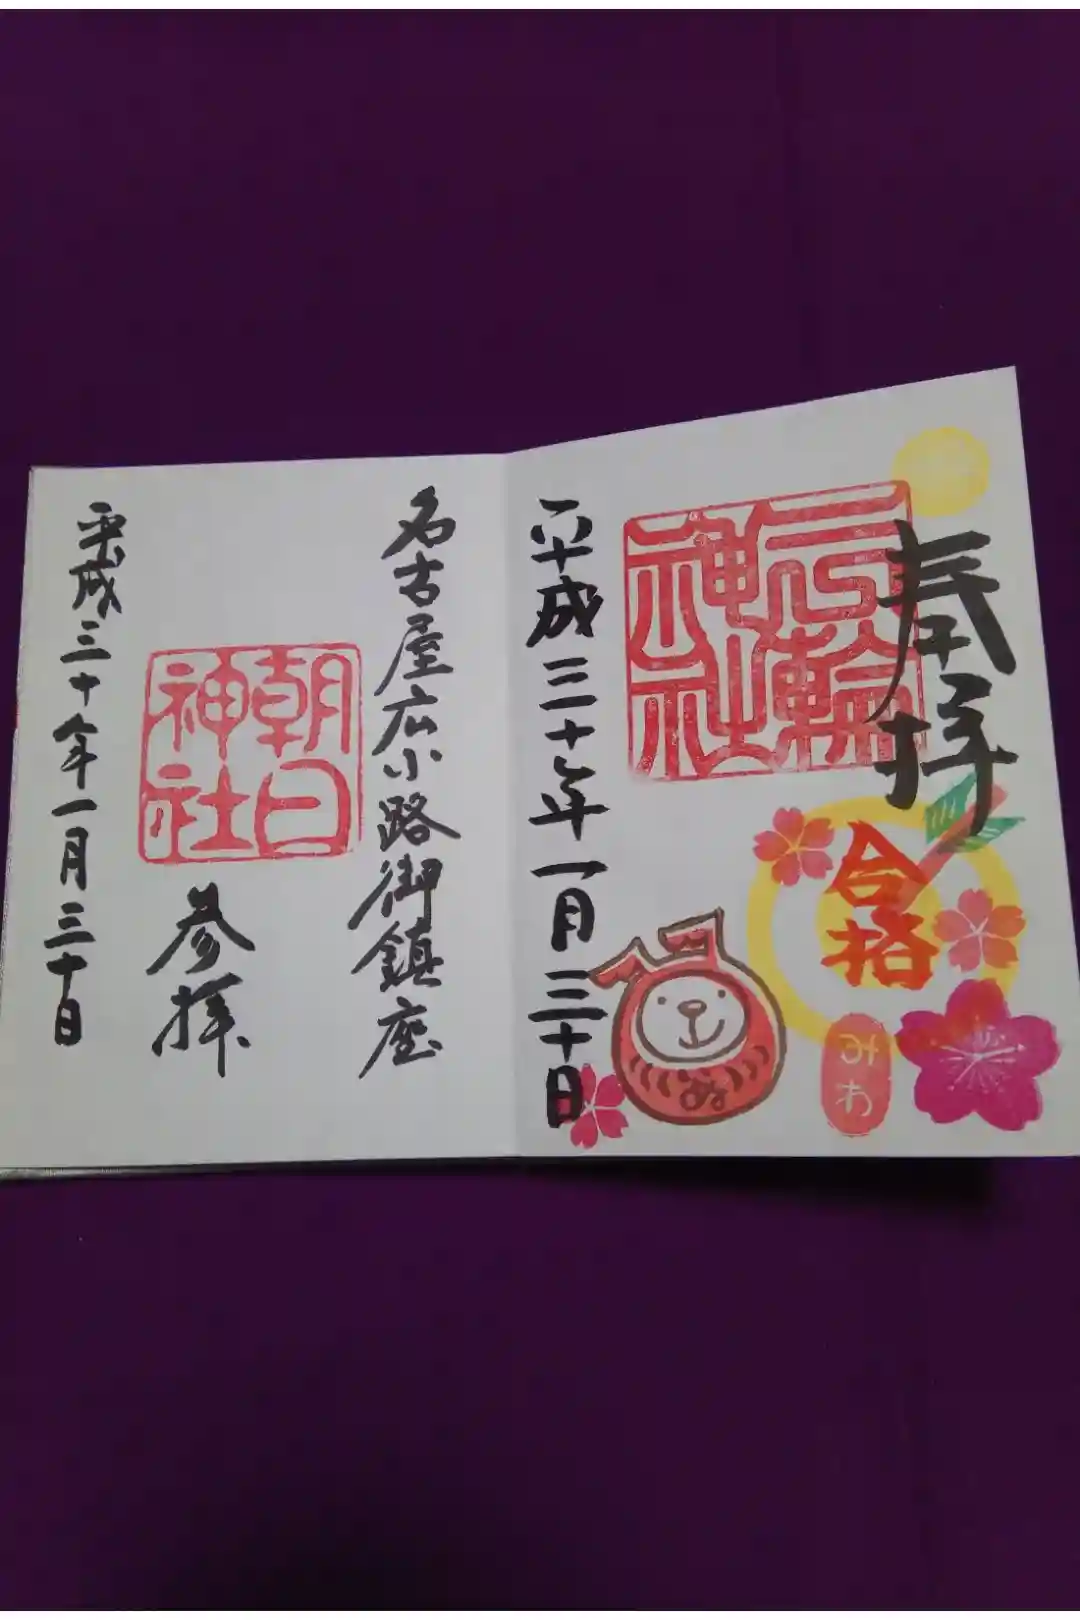 奉拝
三輪
神社
合格
みわ
平成三十年一月三十日
名古屋広小路御鎮座
朝日
神社
参拝
平成三十年一月三十日